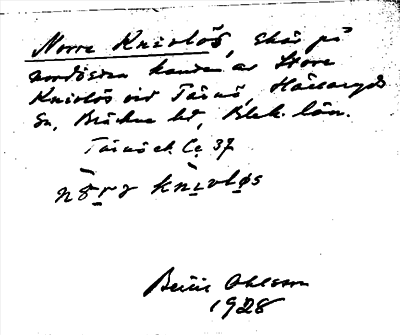 Norre Knivlös, Skär på
nordöstra kanten av Store
Knivlös vid Tärnö, Hällaryds
sn, Bräkne hd, Blek. län.
Tärnö ek. Ce 37
nǫrə knivløs
Ohlsson
1928